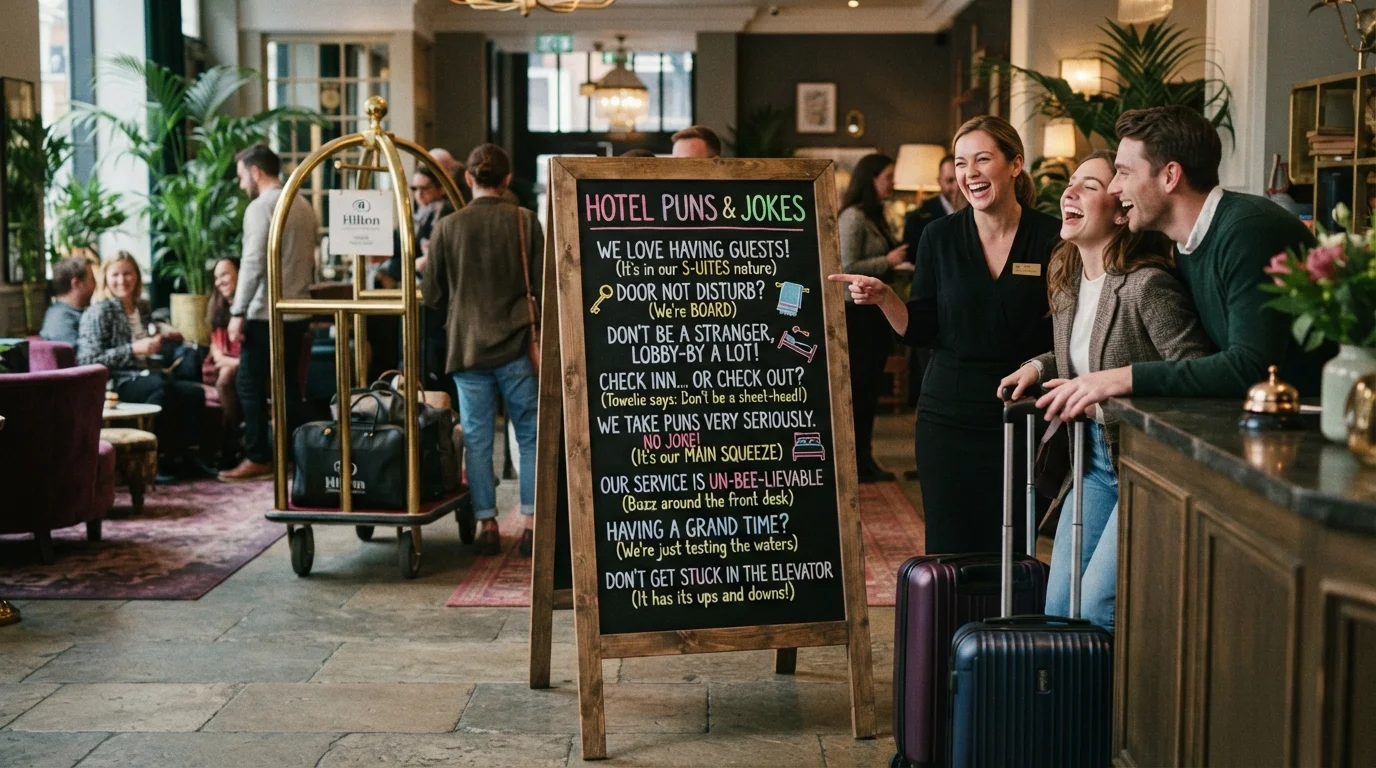 Hilton
HOTEL PUNS & JOKES
WE LOVE HAVING GUESTS!
(It's in our S-UITES nature)
DOOR NOT DISTURB?
(We're BOARD)
DON'T BE A STRANGER,
LOBBY-BY A LOT!
CHECK INN... OR CHECK OUT?
(Towelie says: Don't be a sheet-head!)
WE TAKE PUNS VERY SERIOUSLY.
NO JOKE!
(It's our MAIN SQUEEZE)
OUR SERVICE IS UN-BEE-LIEVABLE
(Buzz around the front desk)
HAVING A GRAND TIME?
(We're just testing the waters)
DON'T GET STUCK IN THE ELEVATOR
(It has its ups and downs!)
Hilton